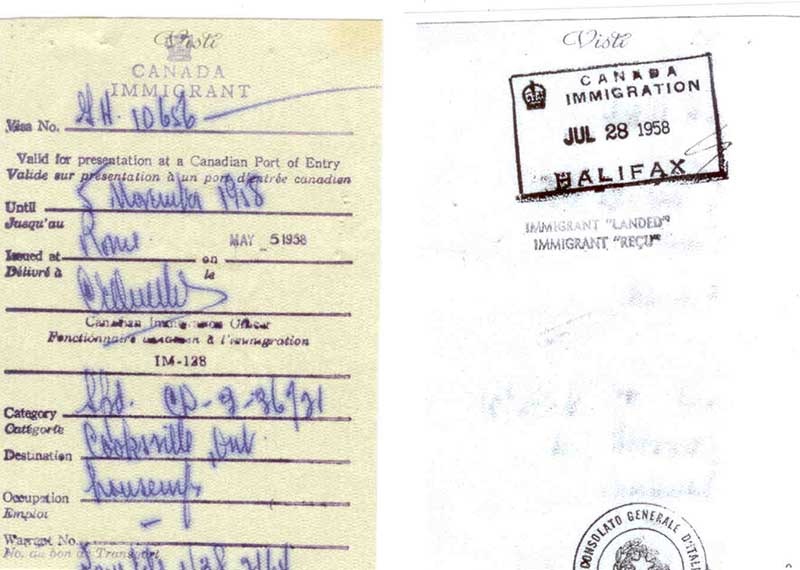 Visti
CANADA
IMMIGRANT
Visa No. 10656
Valid for presentation at a Canadian Port of Entry
Valide sur présentation à un port d'entrée canadien
Until 5 November 1958
Jusqu'au
Issued at Rome on MAY 5 1958
Délivré à le
Canadian Immigration Officer
Fonctionnaire canadien à l'immigration
IM-128
Category CP-2-36721
Catégorie
Destination Cooksville, Ont
Occupation housewife
Emploi
Warrant No. –
No. du bon de Transport
Visti
CANADA
IMMIGRATION
JUL 28 1958
HALIFAX
IMMIGRANT "LANDED"
IMMIGRANT "REÇU"
CONSOLATO GENERALE D'ITALI